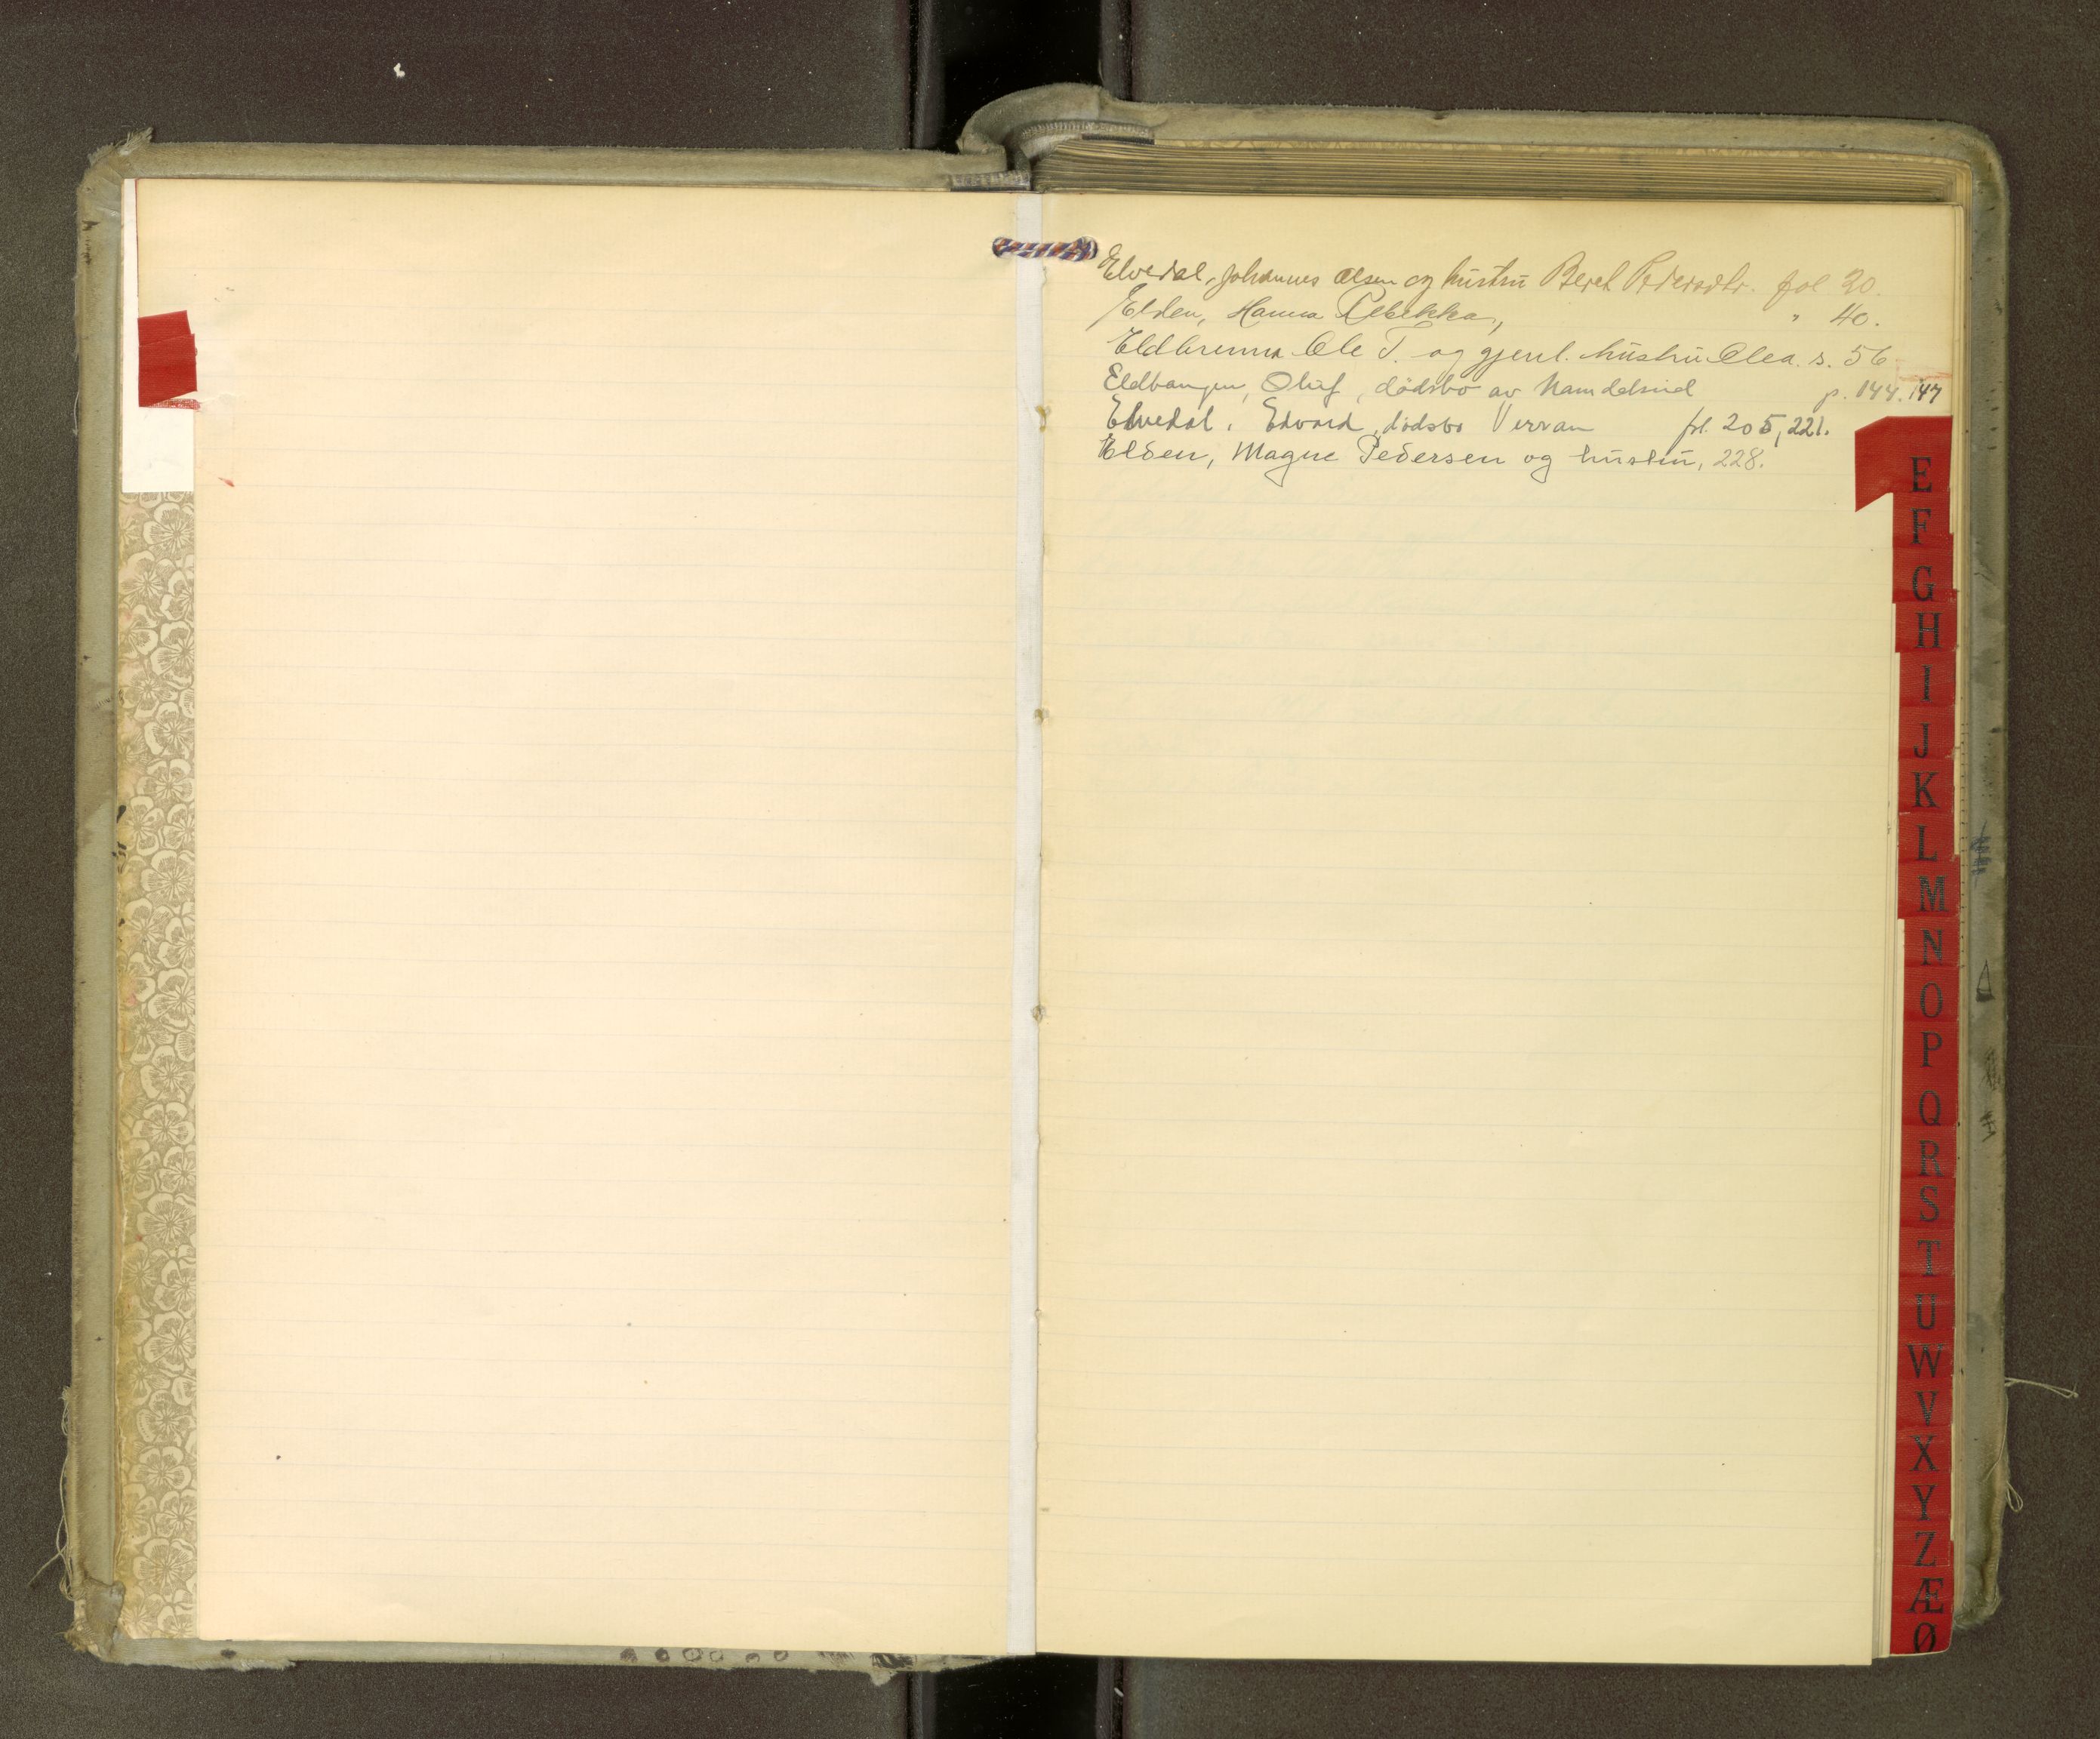 Elvedal, Johannes Olsen og hustru Beret Pedersdtr. fol 20.
Elden, Hanna Rebekka, " 40.
Eldbrenna Ole T. og gjenl. hustru Olea. s. 56
Eldbangen, Oluf, dödsbo av Namdalseid p. 144. 147
Elvedal, Edvard, dödsbo Verran fol. 205, 221.
Elden, Magne Pedersen og hustru, 228.
E
F
G
H
I
J
K
L
M
N
O
P
Q
R
S
T
U
W
V
X
Y
Z
Æ
Ø